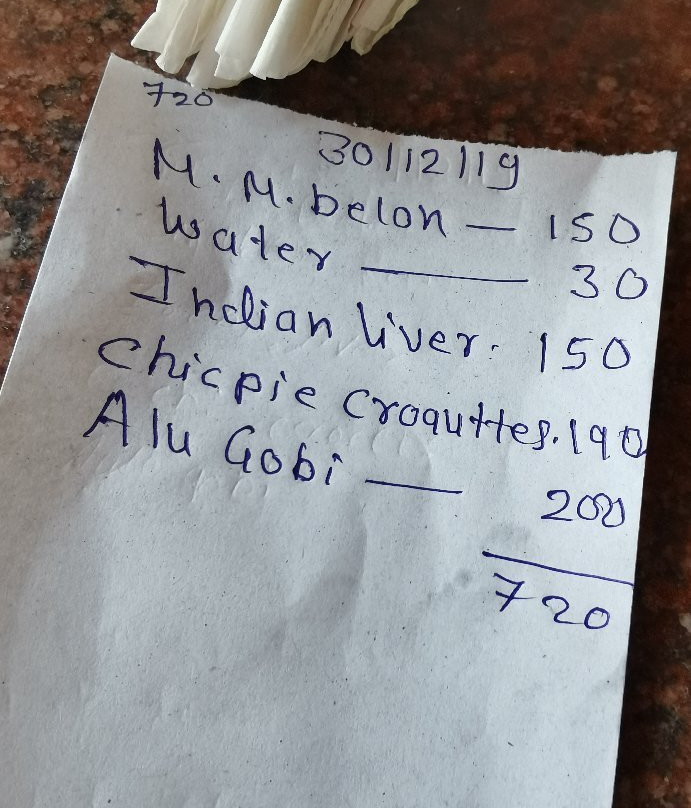 720
30/12/19
M. M. belon — 150
Water — 30
Indian liver. 150
Chicpie Croquttes. 190
Alu Gobi — 200
720